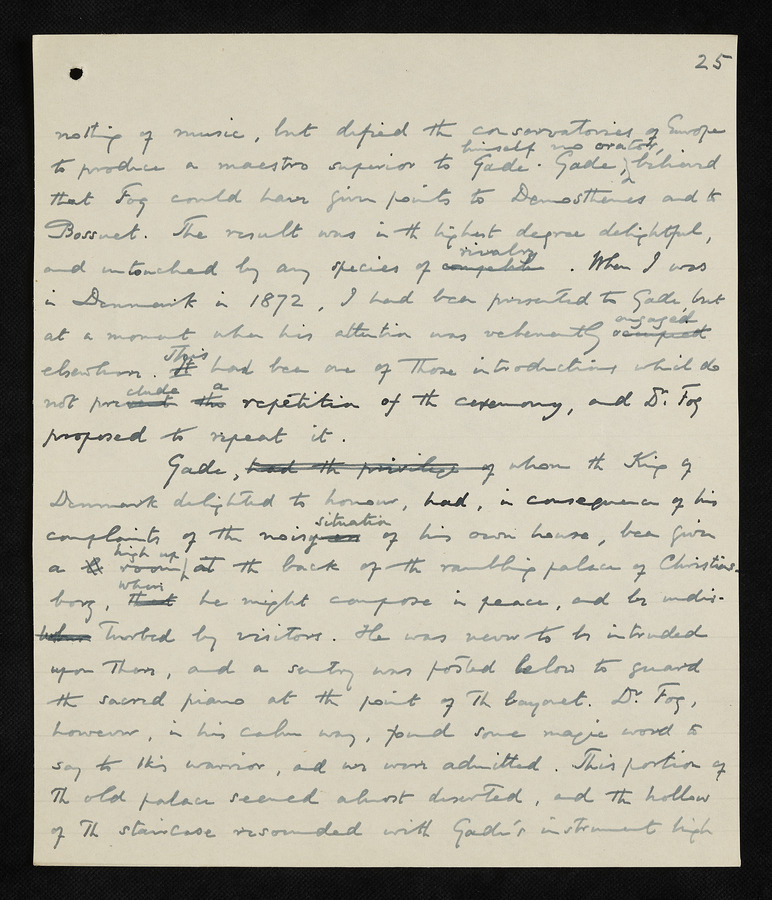 25
nothing of music, but defied the conservatories of Europe
himself no orator,
to produce a maestro superior to Gade. Gade, believed
that Fog could have given points to Demosthenes and to
Bossuet. The result was in the highest degree delightful,
rivalry
and untouched by any species of competition. When I was
in Denmark in 1872, I had been presented to Gade, but
engaged
at a moment when his attention was vehemently occupied
This
elsewhere. It had been one of those introductions which do
clude a
not prevent the repetition of the ceremony, and Dr. Fog
proposed to repeat it.
Gade, had the privilege of whom the King of
Denmark delighted to honour, had, in consequence of his
situation
complaints of the noisyness of his own house, been given
high up
a room at the back of the rambling palace of Christians-
where
borg, that he might compose in peace, and be undis-
turbed by visitors. He was never to be intruded
upon there, and a sentry was posted below to guard
the sacred piano at the point of the bayonet. Dr. Fog,
however, in his calm way, found some magic word to
say to this warrior, and we were admitted. This portion of
the old palace seemed almost deserted, and the hollow
of the staircase resounded with Gade's instrument high